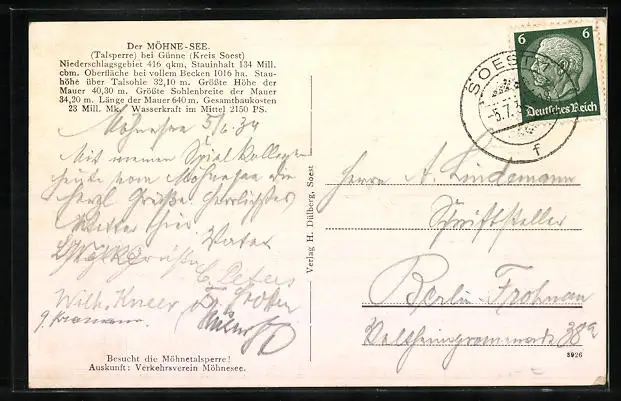 Der MÖHNE-SEE.
(Talsperre) bei Günne (Kreis Soest)
Niederschlagsgebiet 416 qkm, Stauinhalt 134 Mill.
cbm. Oberfläche bei vollem Becken 1016 ha. Stau-
höhe über Talsohle 32,10 m. Größte Höhe der
Mauer 40,30 m. Größte Sohlenbreite der Mauer
34,20 m. Länge der Mauer 640 m. Gesamtbaukosten
23 Mill. Mk. Wasserkraft im Mittel 2150 PS.
Möhnesee 5/
Mit meinen Kollegen
heute vom Möhnesee die
herzl Grüße, herrlichstes
Wetter hier.
Vater
Grüße
C. Peters
Wilh. Kneer
Besucht die Möhnetalsperre!
Auskunft: Verkehrsverein Möhnesee.
Verlag H. Dülberg, Soest
6 6
Deutsches Reich
SOEST
f
Herrn A. Lindemann
Schriftsteller
Berlin-Frohnau
38a
8926